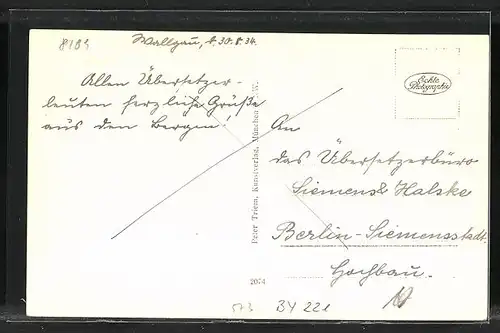 8109
Wallgau, d. 30.8.34.
Allen Übersetzer-
leuten herzliche Grüße
aus den Bergen!
Echte
Photographie
An
das Übersetzerbüro
Siemens & Halske
Berlin-Siemensstadt.
Hochbau.
Peter Triem, Kunstverlag, München
2074
573
BY 221